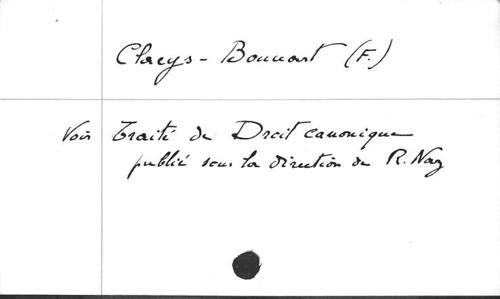 Claeys-Bouuaert (F.)
Voir Traité de Droit canonique
publié sous la direction de R. Naz